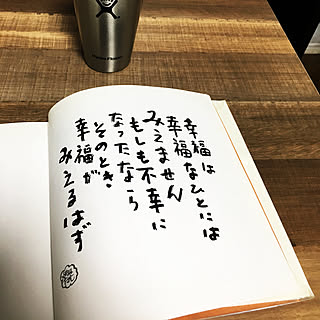 幸福は
幸福なひとには
みえません
もしも不幸に
なったなら
そのとき
幸福が
みえるはず